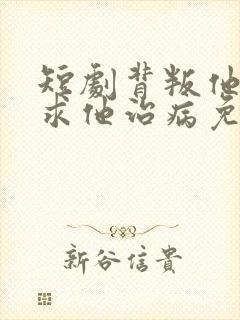 短劇背叛他
求他治病免
新谷信貴